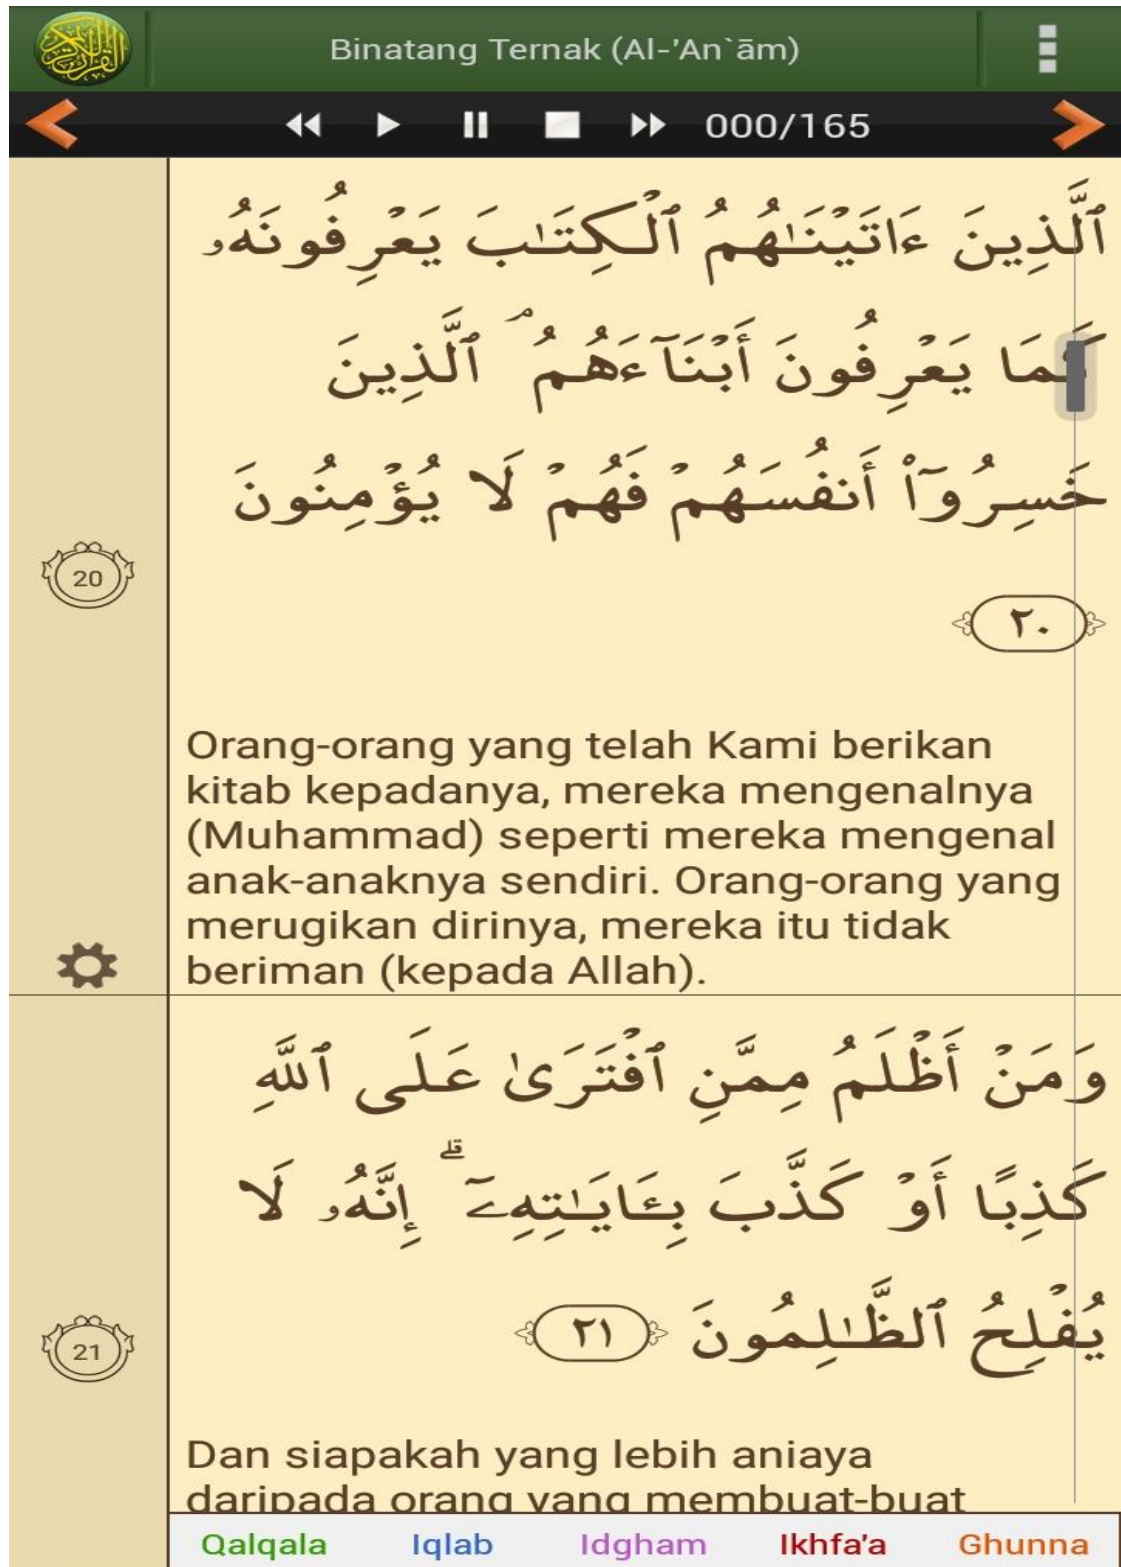 Binatang Ternak (Al-'An`ām)
000/165
ٱلَّذِينَ ءَاتَيْنَـٰهُمُ ٱلْكِتَـٰبَ يَعْرِفُونَهُۥ
كَمَا يَعْرِفُونَ أَبْنَآءَهُمُ ۘ ٱلَّذِينَ
خَسِرُوٓا۟ أَنفُسَهُمْ فَهُمْ لَا يُؤْمِنُونَ
20
٢٠
Orang-orang yang telah Kami berikan
kitab kepadanya, mereka mengenalnya
(Muhammad) seperti mereka mengenal
anak-anaknya sendiri. Orang-orang yang
merugikan dirinya, mereka itu tidak
beriman (kepada Allah).
وَمَنْ أَظْلَمُ مِمَّنِ ٱفْتَرَىٰ عَلَى ٱللَّهِ
كَذِبًا أَوْ كَذَّبَ بِـَٔايَـٰتِهِۦٓ ۗ إِنَّهُۥ لَا
يُفْلِحُ ٱلظَّـٰلِمُونَ ٢١
21
Dan siapakah yang lebih aniaya
daripada orang yang membuat-buat
Qalqala Iqlab Idgham Ikhfa'a Ghunna